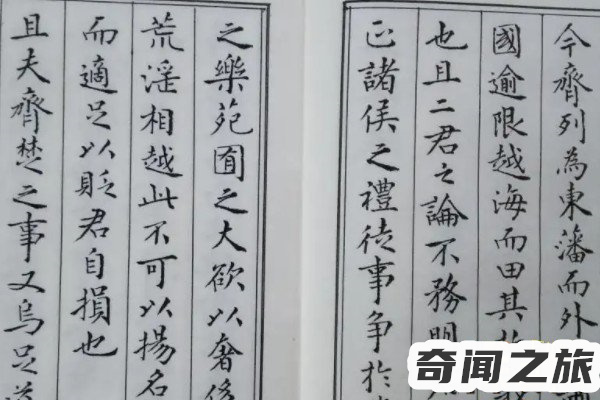 今齊列為東藩而外
國逾限越海而田其
也且二君之論不務明
正諸侯之禮徒事爭於
之樂苑囿之大欲以奢侈
荒淫相越此不可以揚名
而適足以貶君自損也
且夫齊楚之事又烏足道
奇闻之旅